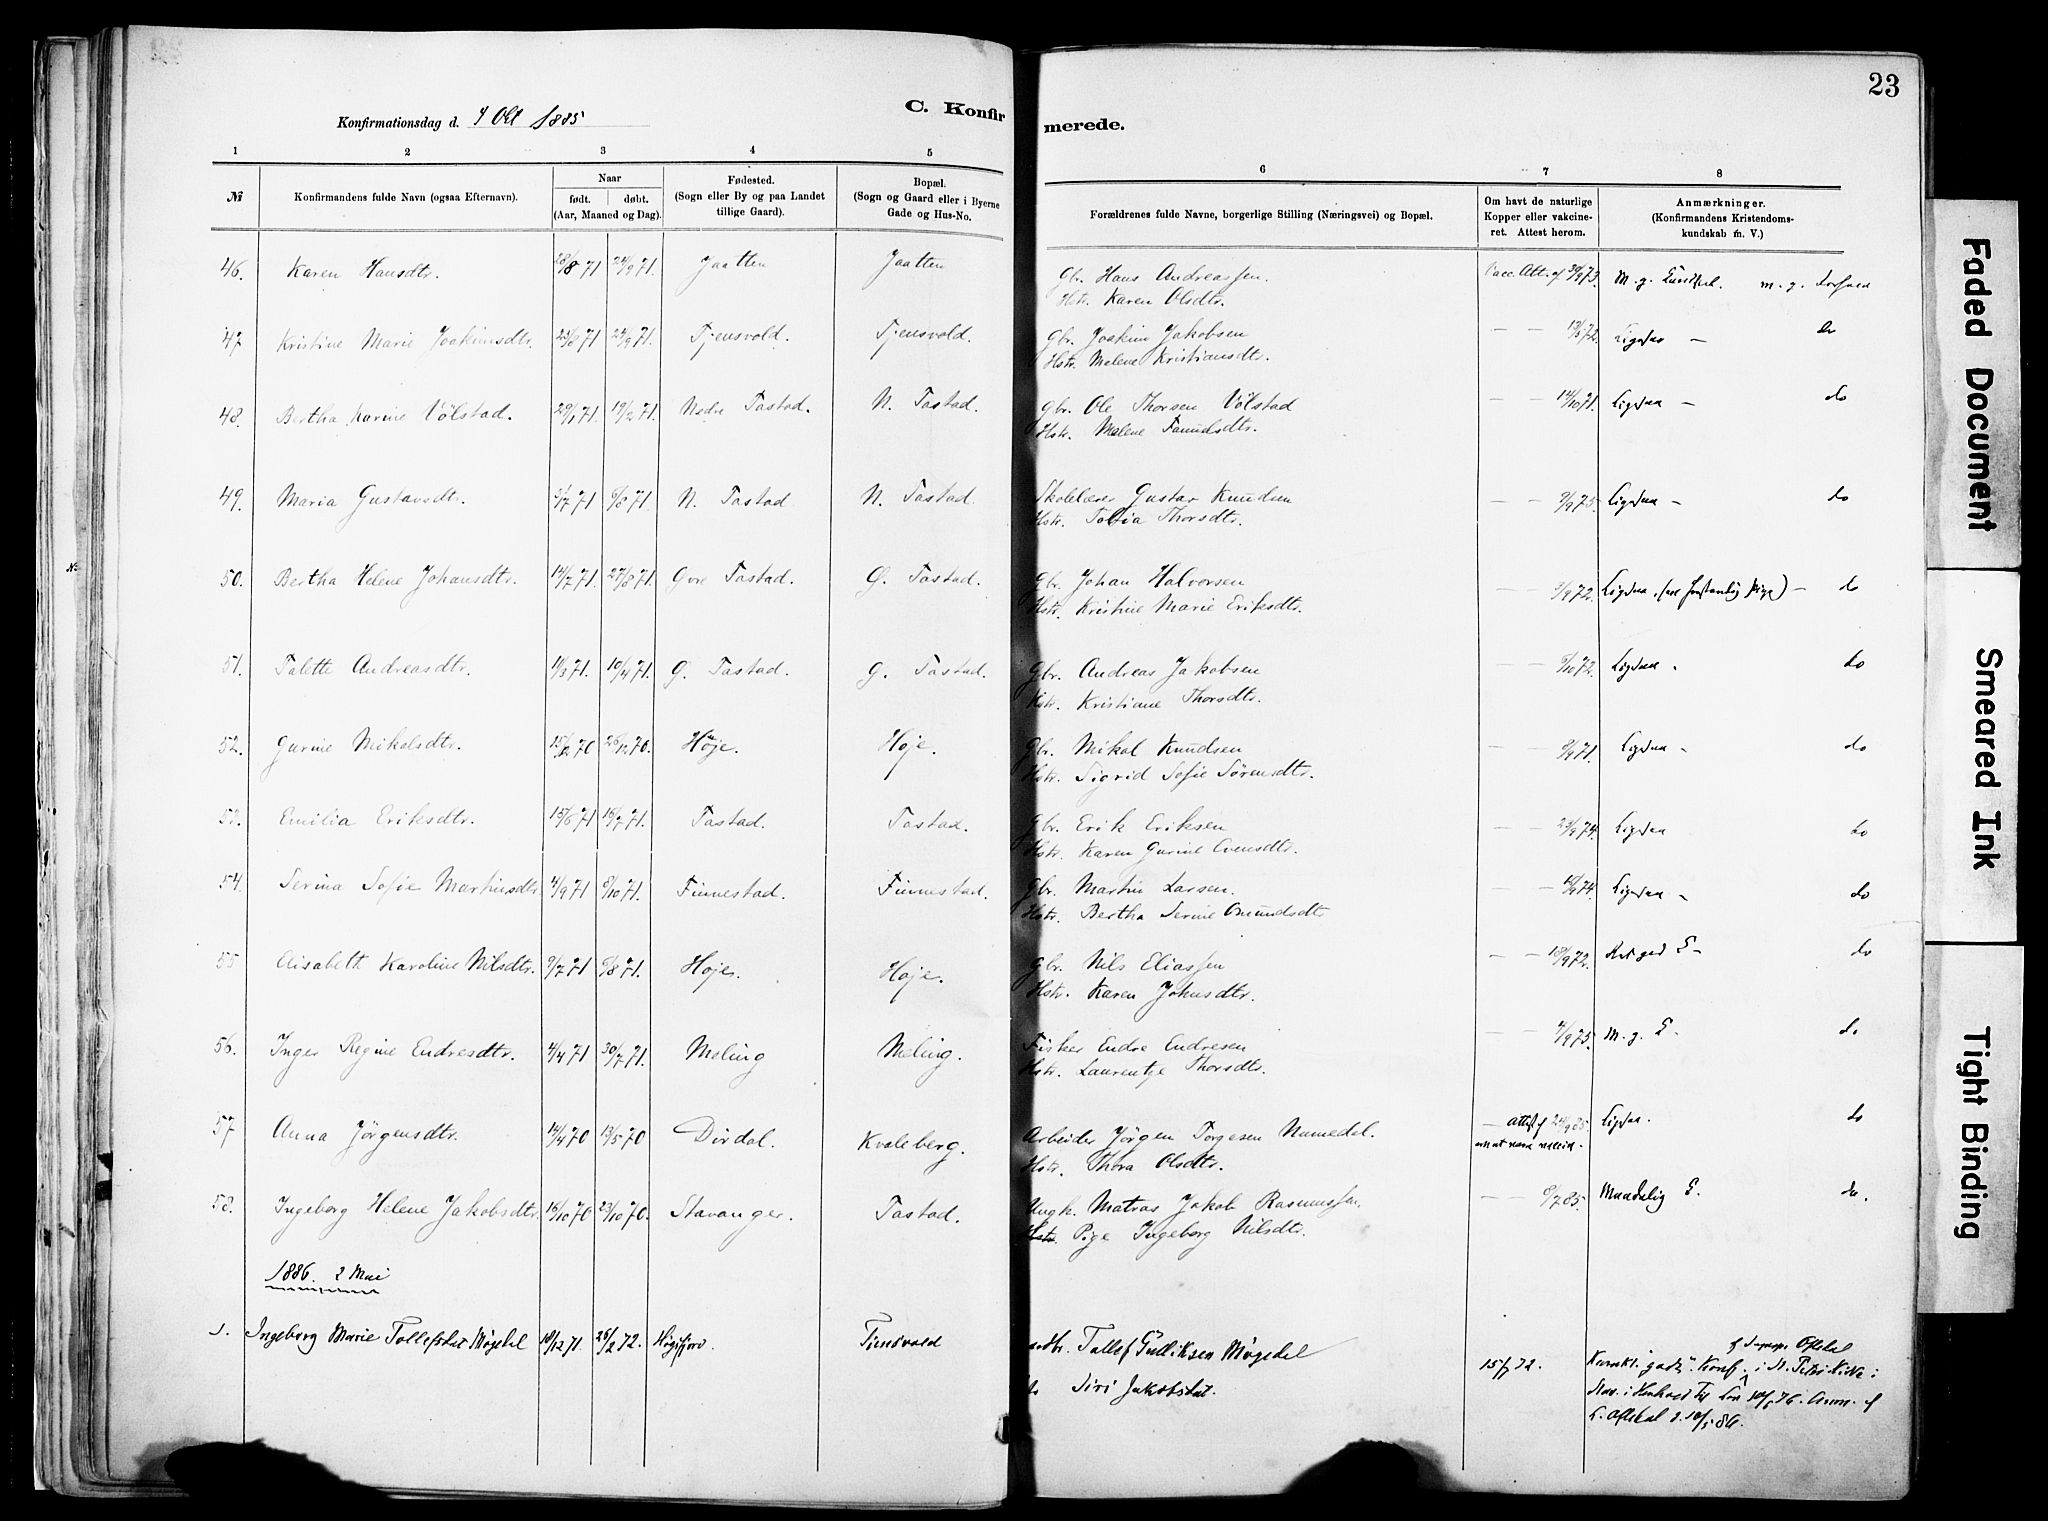 23
C. Konfirmerede.
Konfirmationsdag d. 4 Okt 1885
1 2 3 4 5 6 7 8
№ Konfirmandens fulde Navn (ogsaa Efternavn). Naar født. døbt. (Aar, Maaned og Dag). Fødested. (Sogn eller By og paa Landet tillige Gaard). Bopæl. (Sogn og Gaard eller i Byerne Gade og Hus-No. Forældrenes fulde Navne, borgerlige Stilling (Næringsvei) og Bopæl. Om havt de naturlige Kopper eller vakcineret. Attest herom. Anmærkninger. (Konfirmandens Kristendomskundskab m. V.)
46. Karen Hansdtr. 28/8 71 24/9 71. Jaatten Jaatten Gbr. Hans Andreassen. Vacc. Att. af 30/9 73. M. g. Kundsk. m. g. Forhold
Hstr. Karen Olsdtr.
47 Kristine Marie Joakimsdtr. 25/8 71 24/9 71. Tjensvold. Tjensvold. Gbr. Joakim Jakobsen — — 13/5 72. Ligesaa — do
Hstr. Malene Kristiansdtr.
48. Bertha Karine Völstad. 29/1 71 19/2 71. Nedre Tastad. N. Tastad. Gbr. Ole Thorsen Völstad — — 14/10 71. Ligesaa — do
Hstr. Malene Tamdsdtr.
49. Maria Gustavsdtr. 5/7 71 6/8 71. N. Tastad N. Tastad. Skolelærer Gustav Knudsen — — 9/9 75. Ligesaa — do
Hstr. Tobia Thorsdtr.
50. Bertha Helene Johansdtr. 14/7 71. 27/8 71. Øvre Tastad. Ø. Tastad. Gbr. Johan Halvorsen — — 3/9 72. Ligesaa. — do
Hstr. Kristine Marie Eriksdtr.
51. Talette Andreasdtr. 11/3 71. 10/4 71. Ø. Tastad. Ø. Tastad. Gbr. Andreas Jakobsen — — 5/10 72. Ligesaa - do
Hstr. Kristiane Thorsdtr.
52. Gurine Mikalsdtr. 15/12 70 26/12 70. Høje. Høje. Gbr. Mikal Knudsen — — 9/9 71. Ligesaa - do
Hstr. Sigrid Sofie Sørensdtr.
53. Emilia Eriksdtr. 15/6 71 16/7 71. Tastad. Tastad. Gbr. Erik Eriksen — — 23/9 74. Ligesaa do
Hstr. Karen Gurine Evensdtr.
54. Serina Sofie Martinsdtr. 4/9 71 8/10 71. Finnestad. Finnestad. Gbr. Martin Larsen. — — Ligesaa - do
Hstr. Bertha Serine Omundsdtr
55 Elisabeth Karoline Nilsdtr. 9/7 71 6/8 71. Høje. Høje. Gbr. Nils Eliassen — — 18/9 72. do
Hstr. Karen Johnsdtr.
56. Inger Regine Endresdtr. 4/4 71 30/7 71. Meling Meling. Fisker Endre Endresen — — 4/9 75. M. g. K. do
Hstr. Laurentze Thorsdtr.
57. Anna Jørgensdtr. 14/4 70 13/5 70 Dirdal. Kvaleberg. Arbeider Jørgen Torgesen Namedal. — Attest af 24/9 85. Ligesaa. do
om at være vaccin.
Hstr. Thora Olsdtr.
58. Ingeborg Helene Jakobsdtr. 16/10 70 23/10 70. Stavanger. Tastad. Ungk. Matros Jakob Rasmussen. — — 8/7 85. Maadelig K. do.
Hstr. Pige Ingeborg Nilsdtr.
1886. 2 Mai
1. Ingeborg Marie Tollefsdat Møgedal 18/12 71. 25/2 72. Høgsfjord. Tjensvold Tollef Gulliksen Møgedal 15/7 72.
Siri Jakobsdat.
Faded Document
Smeared Ink
Tight Binding